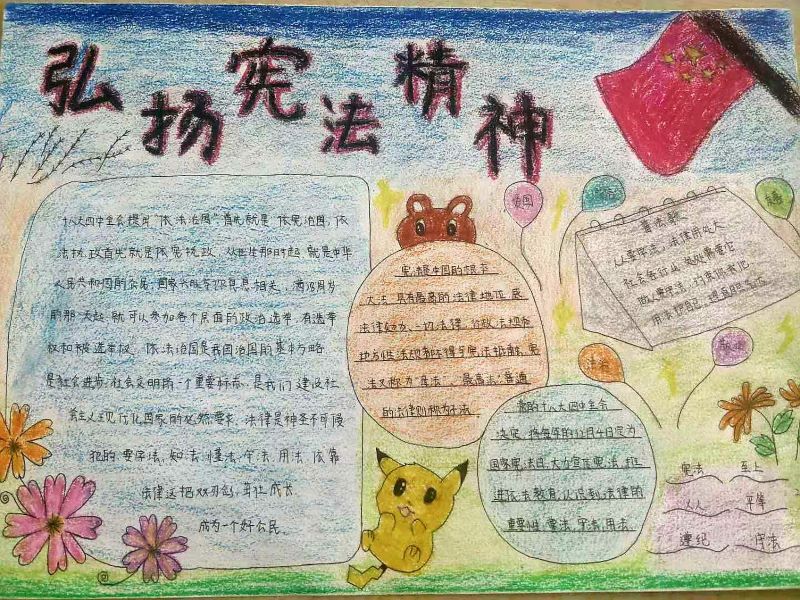 弘扬宪法精神
十八大四中全会提出"依法治国"首先就是依宪治国,依
法执政首先就是依宪执政.从出生那时起,就是中华
人民共和国的公民,国家兴旺与你息息相关,满18周岁
的那天起,就可以参加各个层面的政治选举,有选举
权和被选举权.依法治国是我国治国的基本方略
是社会进步,社会文明的一个重要标志,是我们建设社
会主义现代化国家的必然要求,法律是神圣不可侵
犯的,要学法、知法、懂法、守法、用法、依靠
法律这把双刃剑,茁壮成长.
成为一个好公民.
宪法是中国的根本
大法,具有最高的法律地位
法律效力.一切法律、行政法规和
地方性法规都不得与宪法抵触,宪
法又称为"母法"、最高法;普通
的法律则称为子法
党的十八大四中全会
决定,将每年的12月4日定为
国家宪法日,大力宣传宪法,推
进依法教育,认识到法律的
重要性,学法、守法、用法.
爱国
法治
普法歌
人人要学法,
社会各行业
用法护自己
敬业
宪法 至上
人人 平等
遵纪 守法